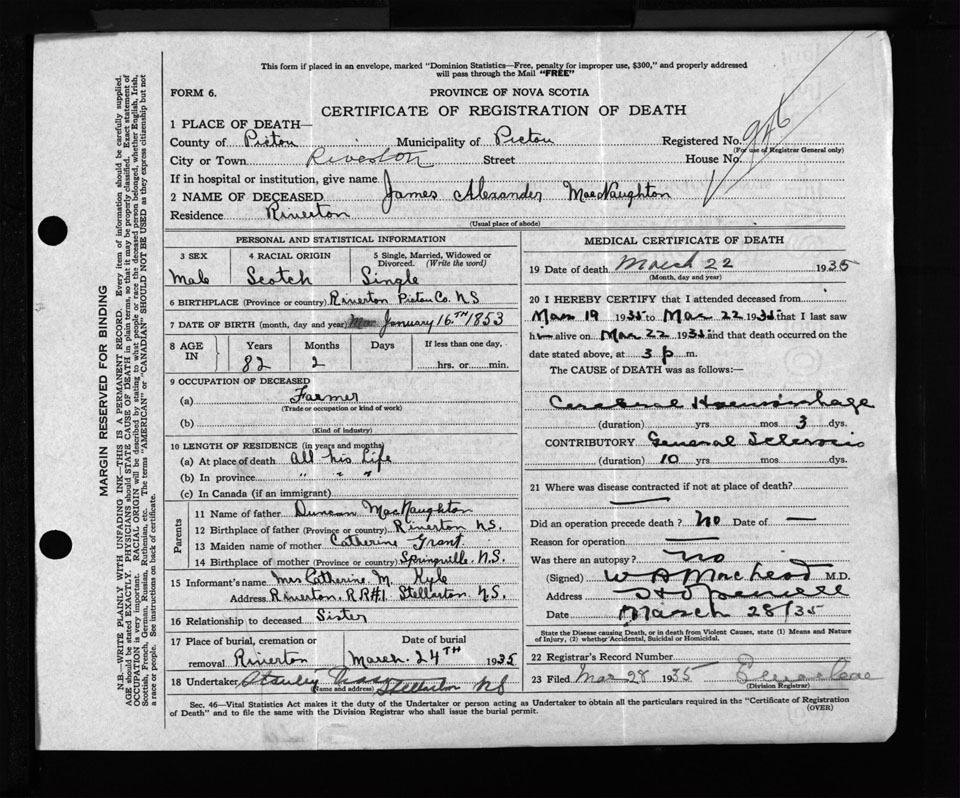 This form if placed in an envelope, marked "Dominion Statistics—Free, penalty for improper use, $300," and properly addressed
will pass through the Mail "FREE"
FORM 6.
PROVINCE OF NOVA SCOTIA
CERTIFICATE OF REGISTRATION OF DEATH
1 PLACE OF DEATH—
County of Pictou Municipality of Pictou Registered No. 946
(For use of Registrar General only)
City or Town Riverton Street House No.
If in hospital or institution, give name
2 NAME OF DECEASED James Alexander MacNaughton
Residence Riverton
(Usual place of abode)
PERSONAL AND STATISTICAL INFORMATION
3 SEX 4 RACIAL ORIGIN 5 Single, Married, Widowed or
Divorced. (Write the word)
Male Scotch Single
6 BIRTHPLACE (Province or country) Riverton Pictou Co. N.S
7 DATE OF BIRTH (month, day and year) January 16TH 1853
8 AGE IN Years Months Days If less than one day,
82 2 hrs. or min.
9 OCCUPATION OF DECEASED
(a) Farmer
(Trade or occupation or kind of work)
(b)
(Kind of industry)
10 LENGTH OF RESIDENCE (in years and months)
(a) At place of death All his Life
(b) In province " " "
(c) In Canada (if an immigrant)
Parents
11 Name of father Duncan MacNaughton
12 Birthplace of father (Province or country) Riverton N.S.
13 Maiden name of mother Catherine Grant
14 Birthplace of mother (Province or country) Springville, N.S.
15 Informant's name Mrs Catherine M. Kyle
Address Riverton, R.R#1 Stellarton N.S.
16 Relationship to deceased Sister
17 Place of burial, cremation or Date of burial
removal Riverton March 24TH 1935
18 Undertaker Stanley
(Name and address) Stellarton N S
MEDICAL CERTIFICATE OF DEATH
19 Date of death March 22 1935
(Month, day and year)
20 I HEREBY CERTIFY that I attended deceased from
Mar 19 1935 to Mar 22 1935 that I last saw
him alive on Mar 22 1935 and that death occurred on the
date stated above, at 3 p m.
The CAUSE of DEATH was as follows:
Cerebral Haemorrhage
(duration) yrs mos 3 dys.
CONTRIBUTORY General Sclerosis
(duration) 10 yrs mos dys.
21 Where was disease contracted if not at place of death? —
Did an operation precede death? No Date of —
Reason for operation —
Was there an autopsy? No
(Signed) W A MacLeod M.D.
Address Hopewell
Date March 28/35
State the Disease causing Death, or in death from Violent Causes, state (1) Means and Nature
of Injury, (2) whether Accidental, Suicidal or Homicidal.
22 Registrar's Record Number
23 Filed Mar 29 1935
(Division Registrar)
Sec. 46—Vital Statistics Act makes it the duty of the Undertaker or person acting as Undertaker to obtain all the particulars required in the "Certificate of Registration
of Death" and to file the same with the Division Registrar who shall issue the burial permit. (OVER)
MARGIN RESERVED FOR BINDING
N.B.—WRITE PLAINLY WITH UNFADING INK—THIS IS A PERMANENT RECORD. Every item of information should be carefully supplied.
AGE should be stated EXACTLY. PHYSICIANS should STATE CAUSE OF DEATH in plain terms, so that it may be properly classified. Exact statement of
OCCUPATION is very important. RACIAL ORIGIN will be described by stating to what people or race the deceased person belonged, whether English, Irish,
Scottish, French, German, Russian, Ruthenian, etc. The terms "AMERICAN" or "CANADIAN" SHOULD NOT BE USED as they express citizenship but not
a race or people. See instructions on back of certificate.